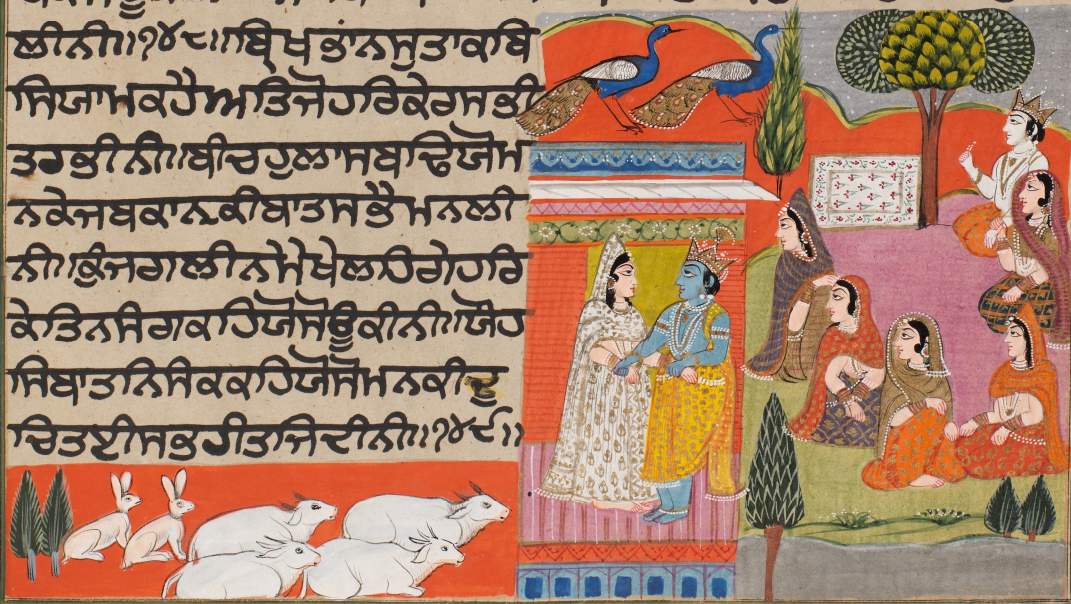 ਲੀਨੀ॥੧੪੮॥ਬ੍ਰਿਖਭਾਨਸੁਤਾਕਬਿ
ਸਿਯਾਮਕਹੈਅਤਿਜੋਹਰਿਕੇਰਸਭੀ
ਤਰਭੀਨੀ॥ਬੀਚਹੁਲਾਸਬਾਢਿਯੋਮ
ਨਕੇਜਬਕਾਨ੍ਹਕੀਬਾਤਸਭੈਮਨਲੀ
ਨੀ॥ਕੁੰਜਗਲੀਨਮੇਖੇਲਹਿਗੇਹਰਿ
ਕੇਤਿਨਸੰਗਕਹਿਯੋਸੋਊਕੀਨੀ॥ਯੌਹ
ਸਿਬਾਤਨਿਸੰਕਕਹਿਯੋਸੋਮਨਕੀਦੁ
ਚਿਤਈਸਭਹੀਤਜਿਦੀਨੀ॥੧੪੯॥